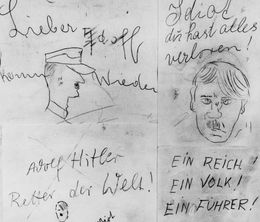 Lieber Adolf
komm Wieder
Idiot
du hast alles
verloren!
Adolf Hitler
Retter der Welt!
EIN REICH!
EIN VOLK!
EIN FÜHRER!